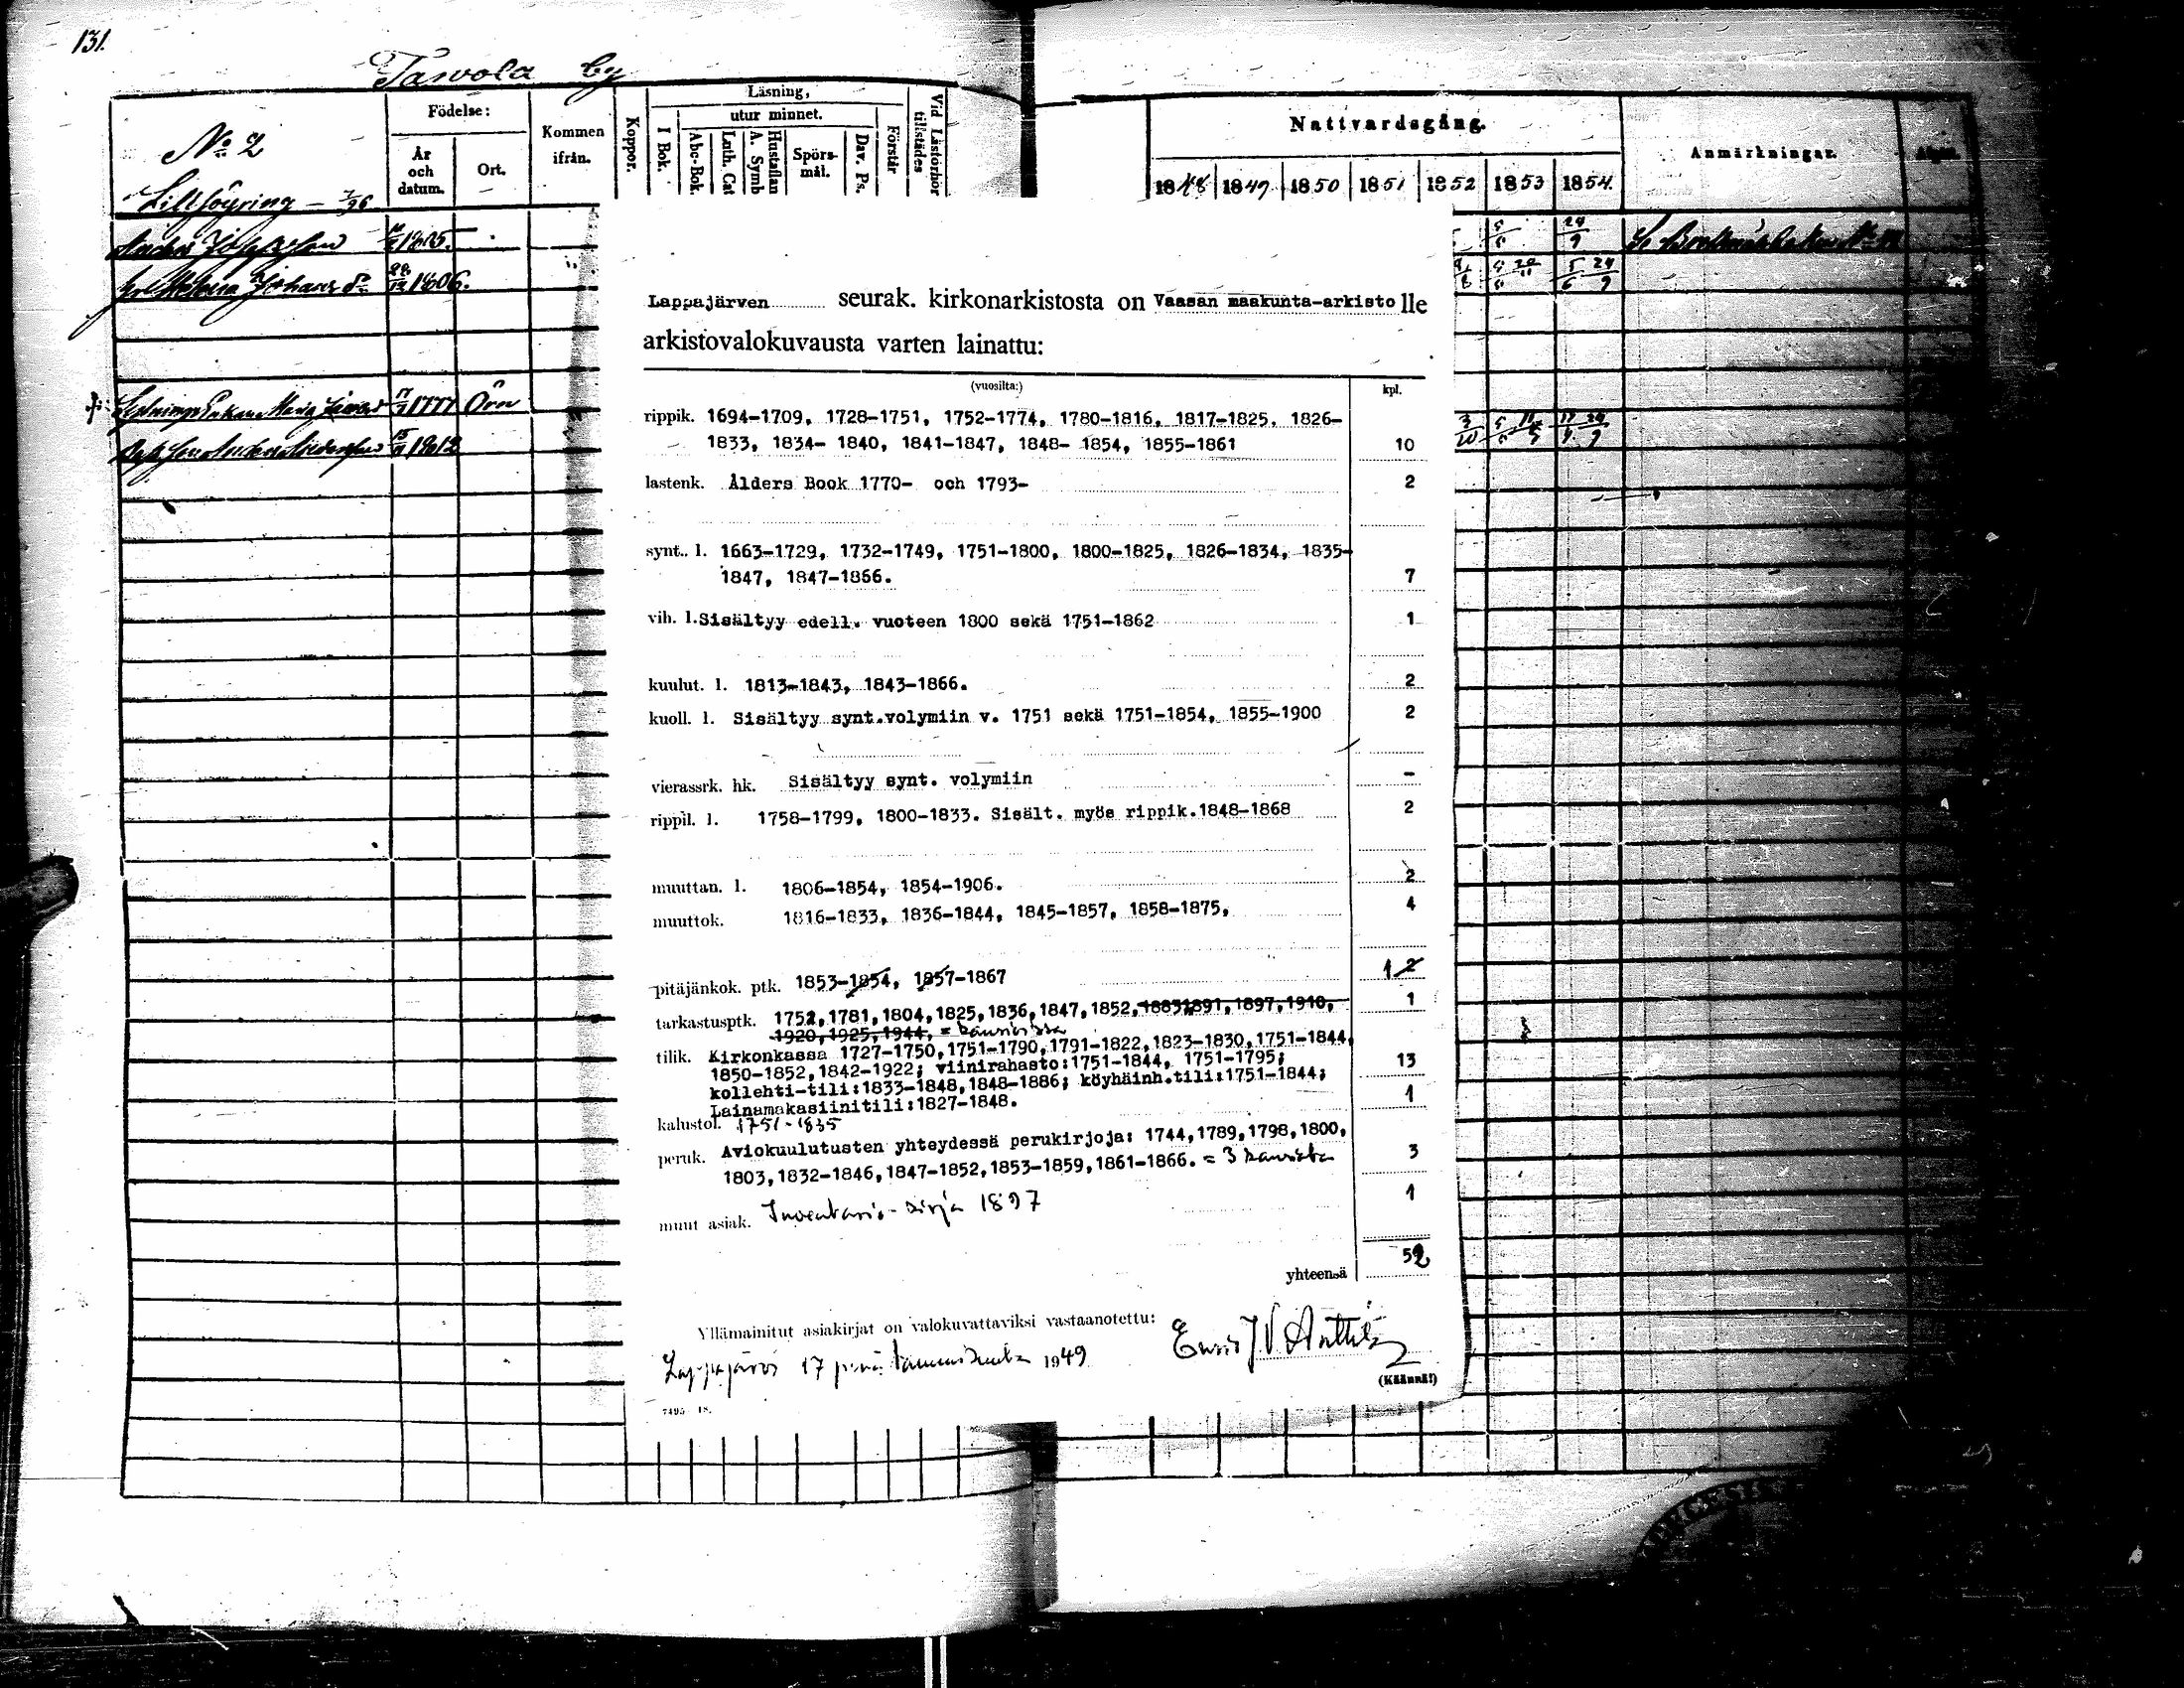 131.
Tarvola by
No 2
Födelse:
År och datum.
Ort.
Kommen ifrån.
Koppor.
Läsning,
I Bok.
utur minnet.
Abc-Bok.
Luth. Cat
A. Symb Hustaflan
Spörs-mål.
Dav. Ps.
Förstår
Vid Läsförhör tillstädes
Nattvardsgång.
1848 1849 1850 1851 1852 1853 1854.
Anmärkningar.
1825.
1806.
1777 Örn
1812
Lappajärven seurak. kirkonarkistosta on Vaasan maakunta-arkisto lle
arkistovalokuvausta varten lainattu:
(vuosilta:) kpl.
rippik. 1694-1709, 1728-1751, 1752-1774, 1780-1816, 1817-1825, 1826-
1833, 1834- 1840, 1841-1847, 1848- 1854, 1855-1861 10
lastenk. Ålders Book 1770- och 1793- 2
synt. l. 1663-1729, 1732-1749, 1751-1800, 1800-1825, 1826-1834, 1835-
1847, 1847-1866. 7
vih. l. Sisältyy edell. vuoteen 1800 sekä 1751-1862 1
kuulut. l. 1813-1843, 1843-1866. 2
kuoll. l. Sisältyy synt.volymiin v. 1751 sekä 1751-1854, 1855-1900 2
vierassrk. hk. Sisältyy synt. volymiin -
rippil. l. 1758-1799, 1800-1833. Sisält. myös rippik.1848-1868 2
muuttan. l. 1806-1854, 1854-1906. 2
muuttok. 1816-1833, 1836-1844, 1845-1857, 1858-1875, 4
pitäjänkok. ptk. 1853-1854, 1857-1867 1 2
tarkastusptk. 1752,1781,1804,1825,1836,1847,1852,18831891,1897,1910, 1
1920,1925,1944, = kansiossa
tilik. Kirkonkassa 1727-1750,1751-1790,1791-1822,1823-1830,1751-1844,
1850-1852,1842-1922; viinirahasto:1751-1844, 1751-1795; 13
kollehti-tili:1833-1848,1848-1886; köyhäinh.tili:1751-1844;
Lainamakasiinitili:1827-1848.
kalustol. 1751-1835 1
peruk. Aviokuulutusten yhteydessä perukirjoja: 1744,1789,1798,1800,
1803,1832-1846,1847-1852,1853-1859,1861-1866. = 3 kansiota 3
muut asiak. Inventario-kirja 1897 1
yhteensä 52
Yllämainitut asiakirjat on valokuvattaviksi vastaanotettu:
Lappajärvi 17 p:nä tammikuuta 1949
(Käännä!)